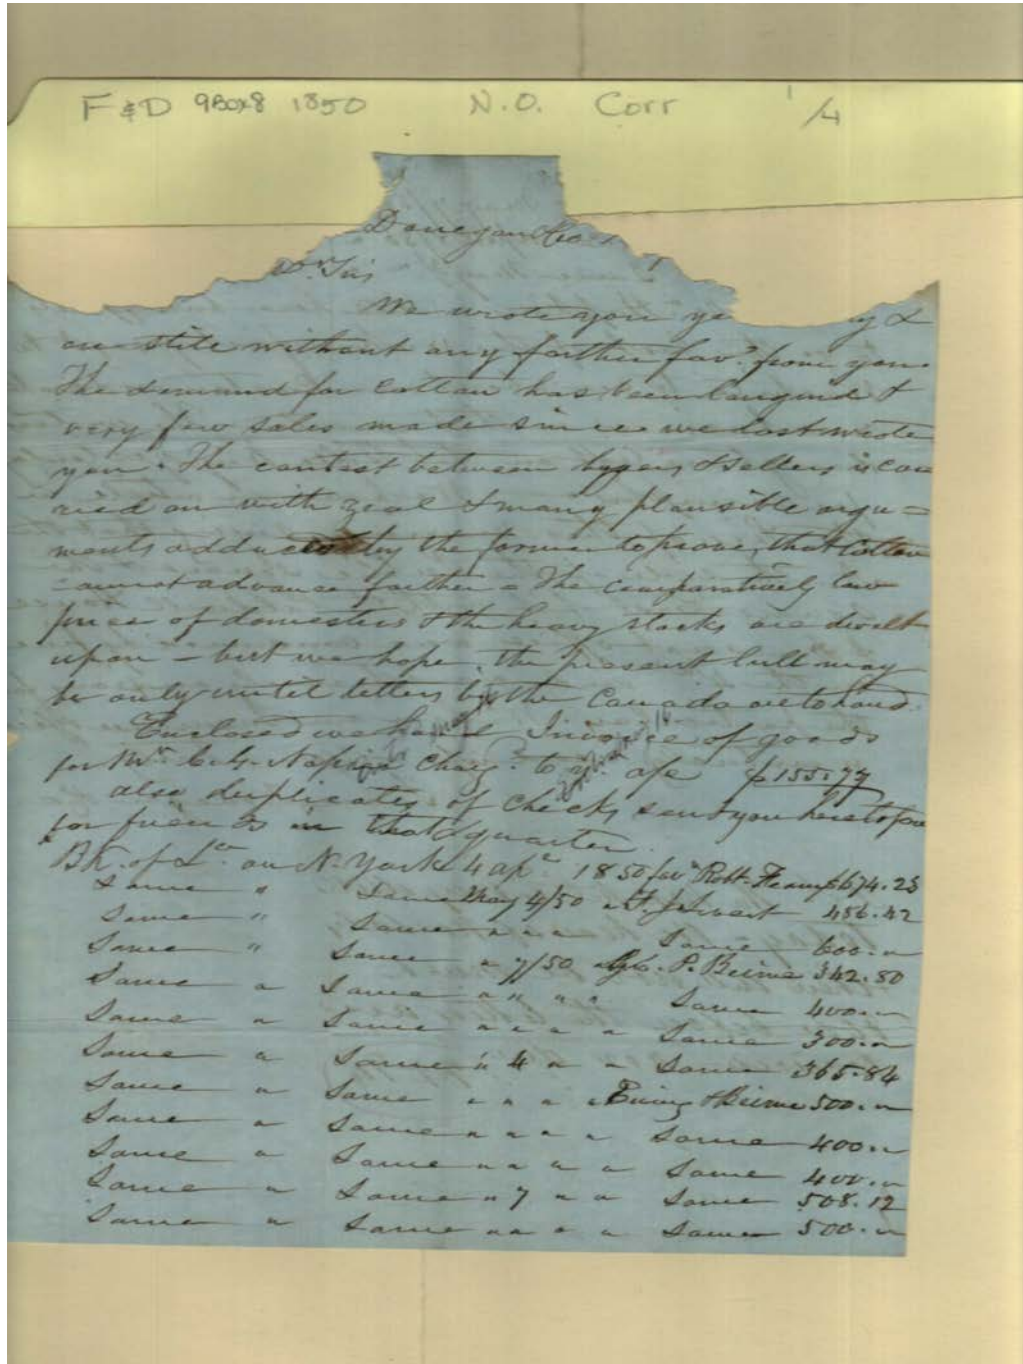 F & D 9Box8 1850 N.O. Corr 1/4
Donegan & Co
Dr Sirs
We wrote you ye y &
are still without any farther favr. from you.
The demand for cotton has been languid &
very few sales made since we last wrote
you. The contest between buyers & sellers is car
ried on with zeal & many plausible argu =
ments adduced by the former to prove, that Cotton
cannot advance farther = The comparatively low
price of domestics & the heavy stocks are dwelt
upon - but we hope, the present lull may
be only until letters by the Canada are to hand.
Enclosed we hand Invoice of goods
for Mr. C. G. Napier Charg.d to yr. a/c $155.77
also duplicates of Checks sent you heretofore
for friends in that quarter.
Bk. of La. on N. York 4 apl 1850 favr Robt. $674.23
Same " Same May 4/50 486.42
Same " Same " " " Same 600."
Same " Same " 7/50 " Geo. P. Beirne 342.80
Same " Same " " " " Same 400."
Same " Same " " " " Same 300."
Same " Same " 4 " " Same 365.84
Same " Same " " " " Ewing & Beirne 500."
Same " Same " " " " Same 400."
Same " Same " " " " Same 400."
Same " Same " 7 " " Same 508.12
Same " Same " " " " Same 500."